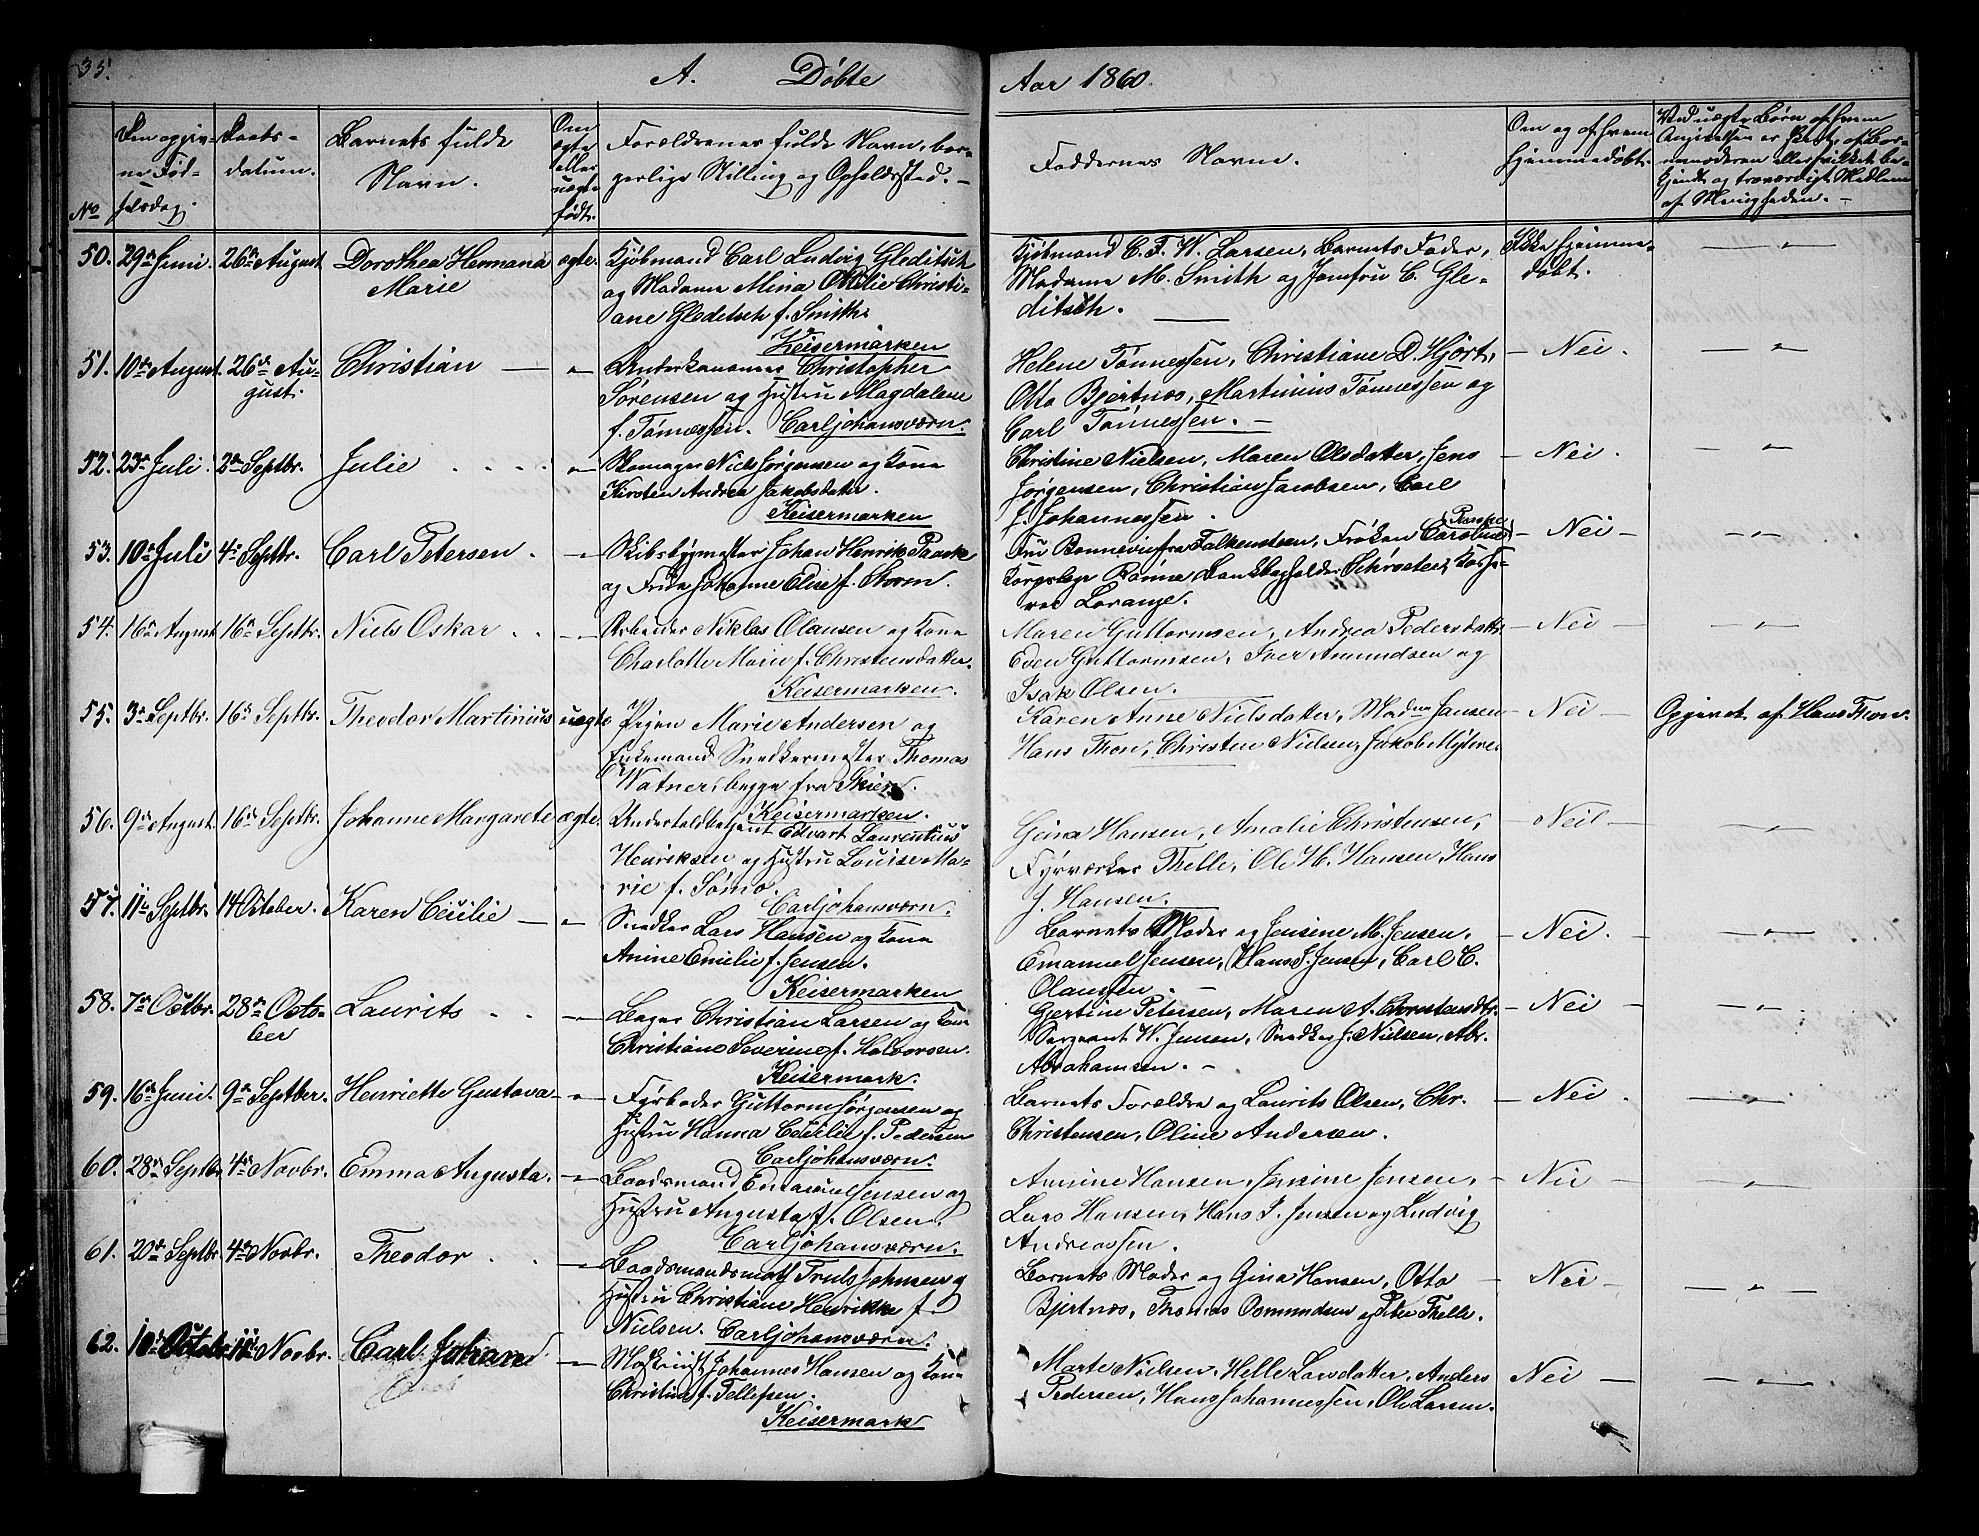 35.
A. Døbte
Aar 1860.
No
Den opgivne Fødselsdag.
Daabsdatum.
Barnets fulde Navn.
Om ægte eller uægte født.
Forældrenes fulde Navn, borgerlige Stilling og Opholdssted. -
Faddernes Navne.
Om og af hvem hjemmedøbt.
Ved uægte Børn af hvem Angivelsen er skeet, af Barnemoderen eller hvilket bekjendt og troværdigt Medlem af Menigheden. -
50. 29de Juni. 26de August Dorothea Hermana Marie ægte.
Kjøbmand Carl Ludvig Gleditsch
og Madame Mina Otilie Christi-
ane Gleditsch f. Smith.
Keisermarken
Kjøbmand C. F. W. Larsen, Barnets Fader,
Madame M. Smith og Jomfru C. Gle-
ditsch.
Ikke hjemme-
døbt.
51. 10de August 26de Au-
gust. Christian — "
Underkanoneer Christopher
Sørensen og Hustru Magdalene
f. Tønnessen. Carljohansværn.
Helene Tønnessen, Christiane D. Hjort,
Otto Bjertnæs, Martinius Tønnessen og
Carl Tønnessen. -
Nei.
52. 23de Juli. 2den Septbr. Julie "
Skomager Niels Jørgensen og Kone
Kirsten Andrea Jakobsdater.
Keisermarken
Christine Nielsen, Maren Olsdatter, Jens
Jørgensen, Christian Jacobsen, Carl
J. Johannessen.
Nei.
53. 10de Juli 4de Septbr. Carl Petersen. "
Skibsbygmester Johan Henrik Paaske
og Frue Johanne Elise f. Storm.
Fru Bonnevie fra Falkensteen, Frøken Caroline Paaske
Korpslæge Rømme Bankbogholder Schrøeter, Kasse-
rer Lorange.
Nei
54. 16de August 16de Septbr. Niels Oskar "
Arbeider Niklas Olausen og Kone
Charlotte Marie f. Christensdatter.
Keisermarken.
Maren Guttormsen, Andrea Pedersdatter
Even Guttormsen, Iver Amundsen og
Isak Olsen.
Nei
55. 3de Septbr. 16de Septbr. Theodor Martinius uægte
Pigen Marie Andersen og
Enkemand Snedkermester Thomas
Watner, begge fra Skien.
Keisermarken.
Karen Anne Nielsdatter, Madme Jansen
Hans Thon, Christen Nielsen, Jakob
Nei
Opgivet af Hans Thon.
56. 9de August 16de Septbr. Johanne Margarete ægte.
Undertoldbetjent Edvart Laurentius
Henriksen og Hustru Louise Ma-
rie f. Sømo.
Carljohansværn.
Gina Hansen, Amalie Christensen,
Fyrværker Thelle, Ole H. Hansen, Hans
J. Hansen.
Nei
57. 11te Septbr. 14 October. Karen Cecilie "
Snedker Lars Hansen og Kone
Anine Emilie f. Jensen.
Keisermarken
Barnets Moder og Jensine M. Jensen,
Emanuel Jensen, Hans J. Jensen, Carl C.
Olaussen.
Nei.
58. 7de Octbr. 28de Octo-
ber Laurits "
Bager Christian Larsen og Kone
Christiane Severine f. Halvorsen.
Keisermark.
Gjertine Petersen, Maren A. Christensdtr.
Sergeant W. Jensen, Snedker J. Nielsen, Abr.
Abrahamsen. -
Nei
59. 16de Juni 9de Septber. Henriette Gustava "
Fyrbøder Guttorm Jørgensen og
Hustru Hanna Cecilie f. Pedersen
Carljohansværn.
Barnets Forældre og Laurits Olsen, Chr.
Christensen, Oline Andersen.
Nei
60. 28de Septbr. 4de Novbr. Emma Augusta. "
Baadsmand Emanuel Jensen og
Hustru Augusta f. Olsen.
Carljohansværn.
Annine Hansen, Jensine Jensen,
Lars Hansen, Hans J. Jensen og Ludvig
Andreassen.
Nei
61. 20de Septbr. 4de Novbr. Theodor "
Baadsmandsmat Truls Johnsen og
Hustru Christiane Henrikke f.
Nielsen. Carljohansværn.
Barnets Moder og Gina Hansen, Otto
Bjertnæs, Thomas Osmundsen og Peter Thelle.
Nei
62. 10de October 11te Novbr. Carl Johan "
Maskinist Johannes Hansen og Kone
Christine f. Tellefsen.
Keisermark.
Marte Nielsen, Helle Larsdatter, Anders
Pedersen, Hans Johannessen, Ole Larsen.
Nei